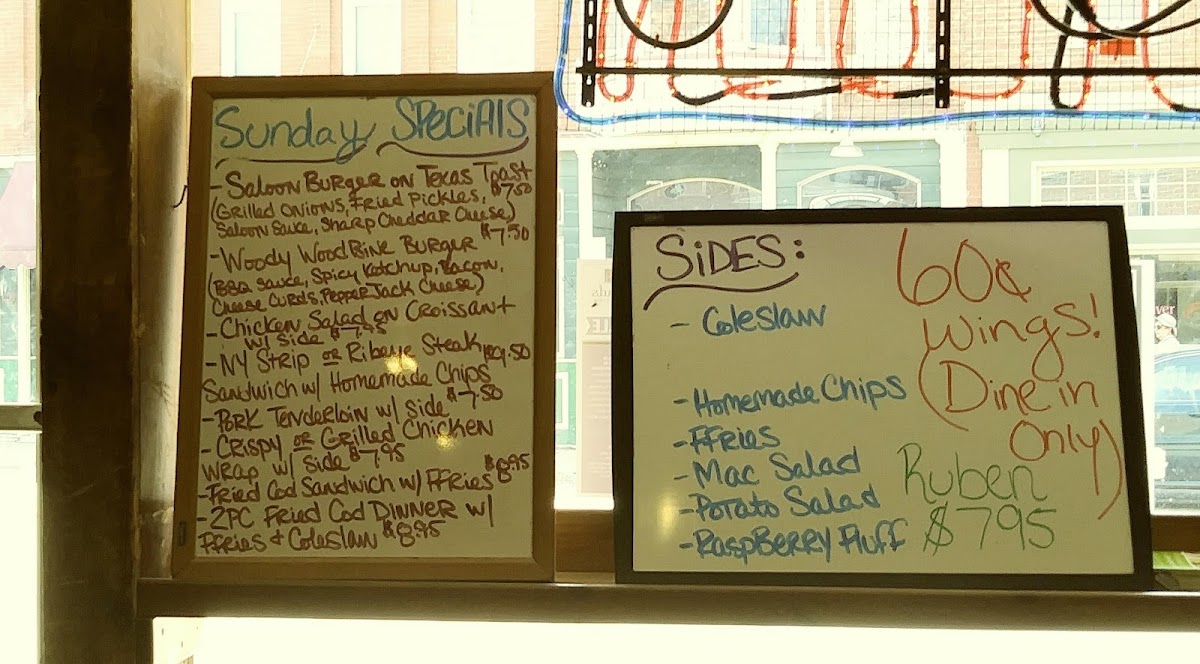 Sunday SPECiAlS
- Saloon Burger on Texas Toast
$7.50
(Grilled onions, Fried Pickles,
Saloon Sauce, Sharp Cheddar Cheese)
- Woody Woodbine Burger $7.50
(BBQ Sauce, Spicy Ketchup, Bacon,
Cheese Curds, Pepper Jack Cheese)
- Chicken Salad on Croissant
w/ side $7.95
- NY Strip or Ribeye Steak $9.50
Sandwich w/ Homemade Chips
- Pork Tenderloin w/ Side $7.50
- Crispy or Grilled Chicken
Wrap w/ Side $7.95
- Fried Cod Sandwich w/ FFries $8.95
- 2PC Fried Cod DINNER w/
FFries & Coleslaw $8.95
SiDES:
- Coleslaw
- Homemade Chips
- FFries
- Mac Salad
- Potato Salad
- RaspBerry Fluff
60¢
Wings!
(Dine in
Only)
Ruben
$7.95